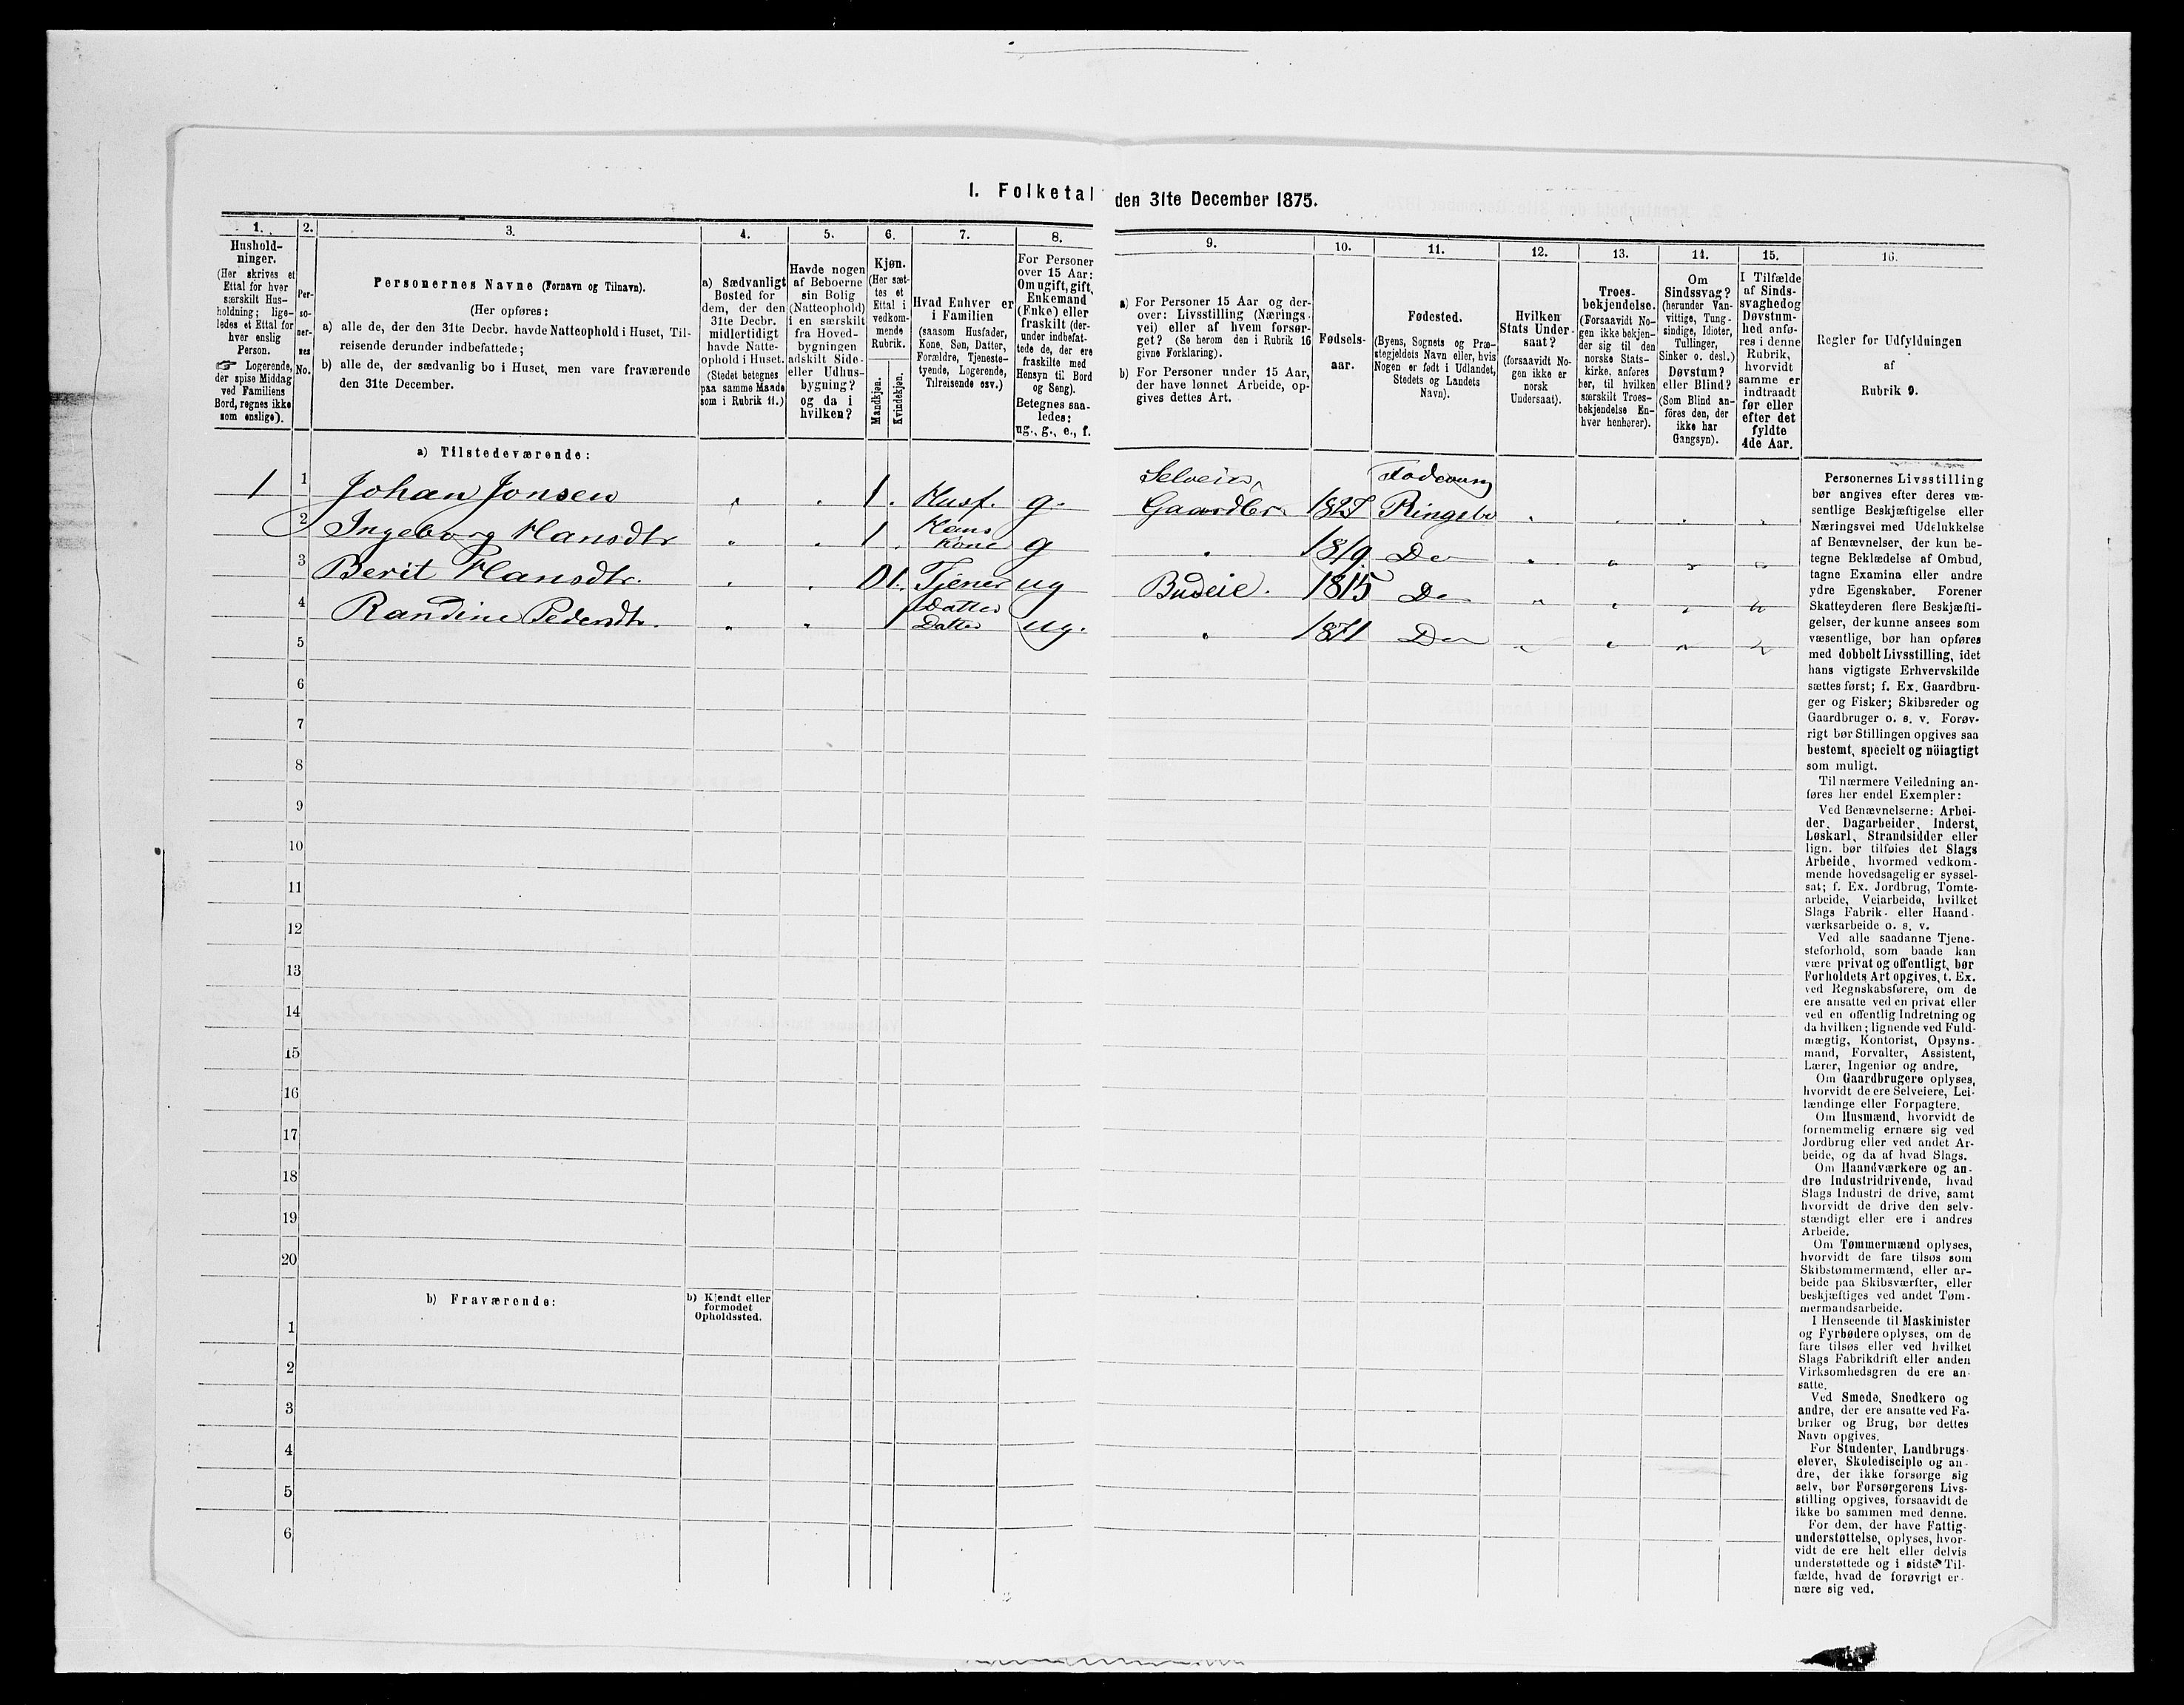 I. Folketal den 31te December 1875.
1.
Hushold-
ninger.
(Her skrives et
Ettal for hver
særskilt Hus-
holdning; lige-
ledes et Ettal for
hver enslig
Person.
☞ Logerende,
der spise Middag
ved Familiens
Bord, regnes ikke
som enslige).
2.
Per-
so-
ner-
nes
No.
3.
Personernes Navne (Fornavn og Tilnavn).
(Her opføres:
a) alle de, der den 31te Decbr. havde Natteophold i Huset, Til-
reisende derunder indbefattede;
b) alle de, der sædvanlig bo i Huset, men vare fraværende
den 31te December.
4.
a) Sædvanligt
Bosted for
dem, der den
31te Decbr.
midlertidigt
havde Natte-
ophold i Huset.
(Stedet betegnes
paa samme Maade
som i Rubrik 11.)
5.
Havde nogen
af Beboerne
sin Bolig
(Natteophold)
i en særskilt
fra Hoved-
bygningen
adskilt Side-
eller Udhus-
bygning?
og da i
hvilken?
6.
Kjøn.
(Her sæt-
tes et
Ettal i
vedkom-
mende
Rubrik.
Mandkjøn.
Kvindekjøn.
7.
Hvad Enhver er
i Familien
(saasom Husfader,
Kone, Søn, Datter,
Forældre, Tjeneste-
tyende, Logerende,
Tilreisende osv.)
8.
For Personer
over 15 Aar:
Om ugift, gift,
Enkemand
(Enke) eller
fraskilt (der-
under indbefat-
tede de, der ere
fraskilte med
Hensyn til Bord
og Seng).
Betegnes saa-
ledes:
ug., g., e., f.
9.
a) For Personer 15 Aar og der-
over: Livsstilling (Nærings-
vei) eller af hvem forsør-
get? (Se herom den i Rubrik 16
givne Forklaring).
b) For Personer under 15 Aar,
der have lønnet Arbeide, op-
gives dettes Art.
10.
Fødsels-
aar.
11.
Fødested.
(Byens, Sognets og Præ-
stegjeldets Navn eller, hvis
Nogen er født i Udlandet,
Stedets og Landets
Navn).
12.
Hvilken
Stats Under-
saat?
(forsaavidt No-
gen ikke er
norsk
Undersaat).
13.
Troes-
bekjendelse.
(Forsaavidt No-
gen ikke bekjen-
der sig til den
norske Stats-
kirke, anføres
her, til hvilken
særskilt Troes-
bekjendelse En-
hver henhører).
14.
Om
Sindssvag?
(herunder Van-
vittige, Tung-
sindige, Idioter,
Tullinger,
Sinker o. desl.)
Døvstum?
eller Blind?
(Som Blind an-
föres den, der
ikke har
Gangsyn).
15.
I Tilfælde
af Sinds-
svaghed og
Døvstum-
hed anfø-
res i denne
Rubrik,
hvorvidt
samme er
indtraadt
før eller
efter det
fyldte
4de Aar.
16.
Regler for Udfyldningen
af
Rubrik 9.
a) Tilstedeværende:
1 1 Johan Jonsen 1. Husf. g. Selveier Gaardbr. 1827 Ringebo
2 Ingeborg Hansdtr 1 Hans Kone g 1819 Do
3 Berit Hansdtr. 1. Tjener ug Budeie. 1815 Do
4 Randine Pedersdtr. 1 Datter Datter ug. 1871 Do
5
6
7
8
9
10
11
12
13
14
15
16
17
18
19
20
b) Fraværende:
b) Kjendt eller
formodet
Opholdssted.
1
2
3
4
5
6
Personernes Livsstilling
bør angives efter deres væ-
sentlige Beskjæftigelse eller
Næringsvei med Udelukkelse
af Benævnelser, der kun be-
tegne Beklædelse af Ombud,
tagne Examina eller andre
ydre Egenskaber. Forener
Skatteyderen flere Beskjæfti-
gelser, der kunne ansees som
væsentlige, bør han opføres
med dobbelt Livsstilling, idet
hans vigtigste Erhvervskilde
sættes først; f. Ex. Gaardbru-
ger og Fisker; Skibsreder og
Gaardbruger o. s. v. Forøv-
rigt bør Stillingen opgives saa
bestemt, specielt og nöiagtigt
som muligt.
Til nærmere Veiledning an-
føres her endel Exempler:
Ved Benævnelserne: Arbei-
der, Dagarbeider, Inderst,
Løskarl, Strandsidder eller
lign. bør tilføies det Slags
Arbeide, hvormed vedkom-
mende hovedsagelig er syssel-
sat; f. Ex. Jordbrug, Tomte-
arbeide, Veiarbeide, hvilket
Slags Fabrik- eller Haand-
værksarbeide o. s. v.
Ved alle saadanne Tjene-
steforhold, som baade kan
være privat og offentligt, bør
Forholdets Art opgives, t. Ex.
ved Regnskabsførere, om de
ere ansatte ved en privat eller
ved en offentlig Indretning og
da hvilken; lignende ved Fuld-
mægtig, Kontorist, Opsyns-
mand, Forvalter, Assistent,
Lærer, Ingeniør og andre.
Om Gaardbrugere oplyses,
hvorvidt de ere Selveiere, Lei-
lændinge eller Forpagtere.
Om Husmænd, hvorvidt de
fornemmelig ernære sig ved
Jordbrug eller ved andet Ar-
beide, og da af hvad Slags.
Om Haandværkere og an-
dre Industridrivende, hvad
Slags Industri de drive, samt
hvorvidt de drive den selv-
stændigt eller ere i andres
Arbeide.
Om Tømmermænd oplyses,
hvorvidt de fare tilsøs som
Skibstømmermænd, eller ar-
beide paa Skibsværfter, eller
beskjæftiges ved andet Tøm-
mermandsarbeide.
I Henseende til Maskinister
og Fyrbødere oplyses, om de
fare tilsøs eller ved hvilket
Slags Fabrikdrift eller anden
Virksomhedsgren de ere an-
satte.
Ved Smede, Snedkere og
andre, der ere ansatte ved Fa-
briker og Brug, bør dettes
Navn opgives.
For Studenter, Landbrugs-
elever, Skoledisciple og an-
dre, der ikke forsørge sig
selv, bør Forsørgerens Livs-
stilling opgives, forsaavidt de
ikke bo sammen med denne.
For dem, der have Fattig-
understøttelse, oplyses, hvor-
vidt de ere helt eller delvis
understøttede og i sidste Til-
fælde, hvad de forøvrigt er-
nære sig ved.